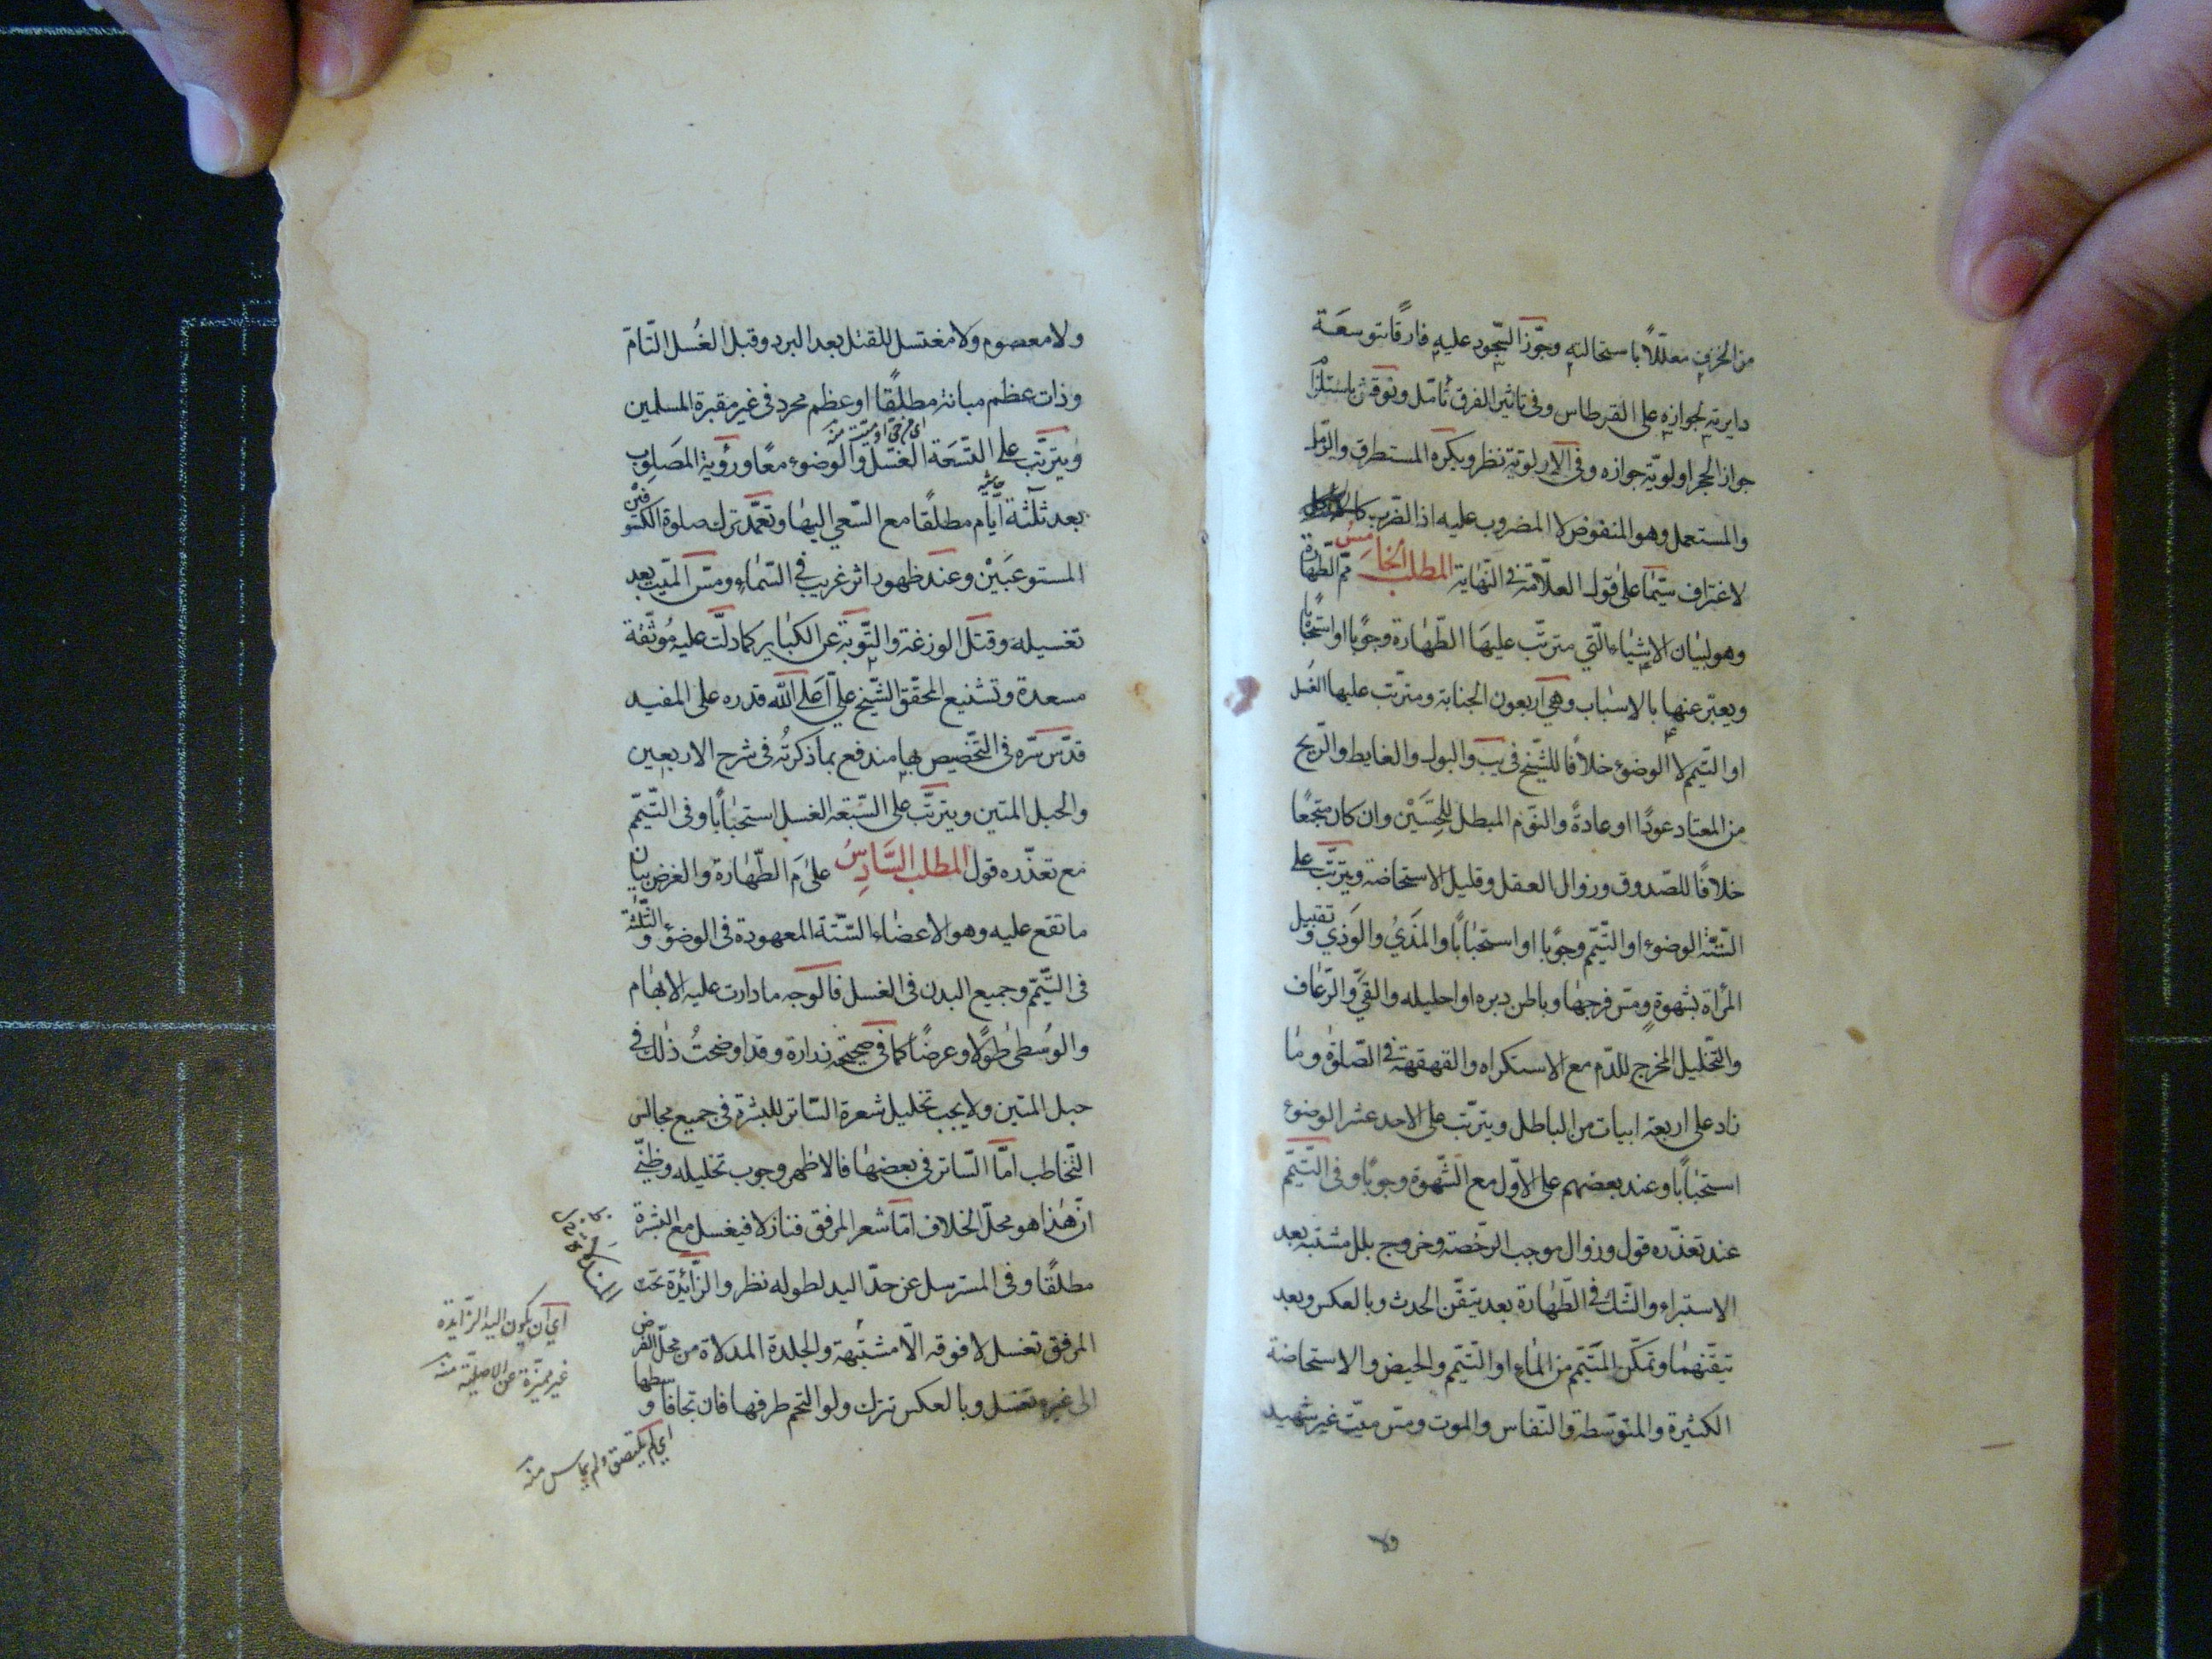 من الخزف معلّلاً باستحالته وجوّز السّجود عليه فارقًا بتوسعة
دايرته لجوازه على القرطاس وفى تاثير الفرق تأمّل وتوقّش باستلزام
جواز الحجر اولويّة جوازه وفى الاولويّة نظر ويكره المستطرق والرّمل
والمستعمل وهو المنفوض لا المضروب عليه اذ الضّرب
لاغتراف سيّما على قول العلّامة فى النّهاية المطلب الخامس ممّ الطّهارة
وهو لبيان الاشياء الّتي مترتّب عليها الطّهارة وجوبًا او استحبابًا
ويعبّر عنها بالاسباب وهي اربعون الجنابة ومترتّب عليها الغسل
او التيمم لا الوضوء خلافًا للشّيخ فى يب والبول والغايط والرّيح
من المعتاد عودًا او عادةً والنّوم المبطل للحسّين وان كان مجتمعًا
خلافًا للصّدوق وزوال العقل وقليل الاستحاضة ويترتّب على
السّتّة الوضوء او التّيمّم وجوبا او استحبابًا والمذي والوذي وتقبيل
المرأة بشهوةٍ ومس فرجها وباطن دبره او احليله والقيّ والرّعاف
والتّخليل المخرج للدّم مع الاستكراه والقهقهة فى الصّلوة وما
زاد على اربعة ابيات من الباطل ويترتّب على الاحد عشر الوضوء
استحبابًا وعند بعضهم على الاوّل مع الشّهوة وجوبًا وفى التّيمّم
عند تعذّره قول وزوال موجب الرّخصة وخروج بلل مشتبه بعد
الاستبراء والشّك فى الطّهارة بعد تيقّن الحدث وبالعكس وبعد
تيقّنهما وتمكّن المتيمّم من الماء او التّيمّم والحيض والاستحاضة
الكثيرة والمتوسّطة والنّفاس والموت ومسّ ميّت غير شهيد
ولا
ولا معصوم ولا مغتسل للقتل بعد البرد وقبل الغُسل التّامّ
وذات عظم مبانة مطلقًا او عظم مجرد فى غير مقبرة المسلمين
اى من حىّ او ميّت منه
ويترتّب على التّسعة الغسل والوضوء معًا ورؤية المصلوب
بعد ثلثة ايّام مطلقًا مع السّعي اليها وتعمّد ترك صلوة الكسوفين
المستوعبَيْن وعند ظهور اثر غريب فى السّماء ومسّ الميّت بعد
تغسيله وقتل الوزغة والتّوبة عن الكباير كما دلّت عليه مُوثّقة
مسعدة وتشنيع المحقّق الشّيخ عليّ اعلى اللّه قدره على المفيد
قدّس سرّه فى التّخصيص بها مندفع بما ذكرتُه فى شرح الاربعين
والحبل المتين ويترتّب على السّبعة الغسل استحبابًا وفى التّيمّم
مع تعذّره قول المطلب السّادسُ علىٰ مَ الطّهارة والغرض بيان
ما تقع عليه وهو الاعضاء السّتّة المعهودة فى الوضوء والثّلثة
فى التّيمّم وجميع البدن فى الغسل فالوجه ما دارت عليه الابهام
والوُسطىٰ طولًا وعرضًا كما فى صحيحة زرارة وقد اوضحتُ ذلك فى
حبل المتين ولا يجب تخليل شعرة السّاتر للبشرة فى جميع مجالس
التّخاطب امّا السّاتر فى بعضها فالاظهر وجوب تخليله وظنّي
انّ هذا هو محلّ الخلاف امّا شعر المرفق فنازلا فيغسل مع البشرة
مطلقًا وفى المسترسل عن حدّ اليد لطوله نظر والزّائدة تحت
المرفق تغسل لا فوقه الّا مشتبهة والجلدة المدلاة من محلّ الفرض
الى غيره تغسل وبالعكس تترك ولو التحم طرفها فان تجافا وسطها
اي ان يكون اليد الزّايدة
غير مميّزة عن الاصليّة منه
اي لم يلتصق ولم يماس منه